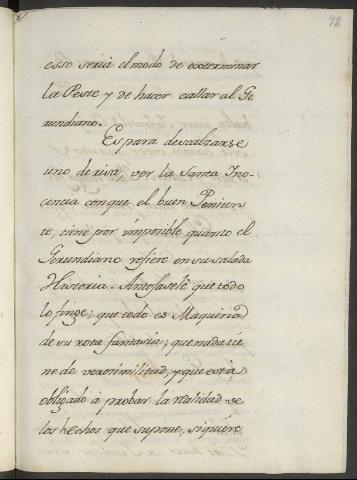 42
esso sería el modo de exterminar
la Peste y de hacer callar al Ge
rundiano.
Es para descalzarse
uno de risa, ver la Santa Ino-
cencia con que el buen Peniten-
te, tiene por imposible quanto el
Gerundiano refiere en su salada
Historia. Antojasele que todo
lo finge; que todo es Maquina
de su rota fantasia; que nada tie
ne de verosimilitud, y que está
obligado à probar la realidad de
los hechos que supone, siquiere